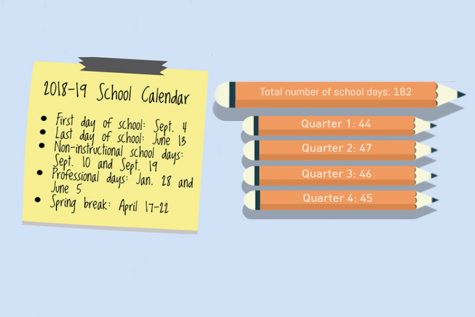 2018-19 School Calendar
First day of school: Sept. 4
Last day of school: June 13
Non-instructional school days:
Sept. 10 and Sept. 19
Professional days: Jan. 28 and
June 5
Spring break: April 17-22
Total number of school days: 182
Quarter 1: 44
Quarter 2: 47
Quarter 3: 46
Quarter 4: 45